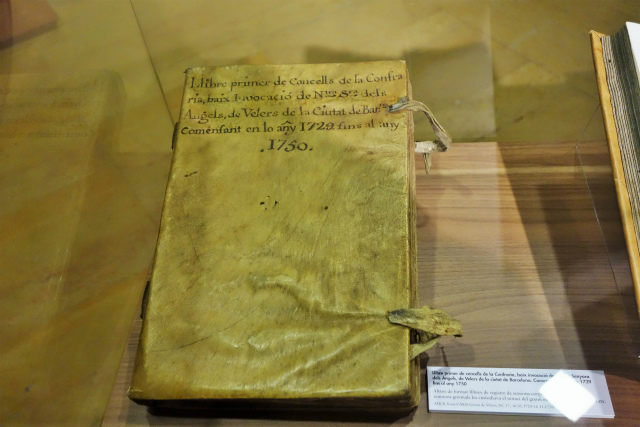 Llibre primer de Concells de la Confra
ria, baix Invocació de N.ra S.ra dels
Angels, de Velers de la Ciutat de Bar.na
Comensant en lo añy 1729 fins al any
.1750.
Llibre primer de concells de la Confraria, baix invocació de
dels Angels, de Velers de la ciutat de Barcelona. 1729
fins al any 1750